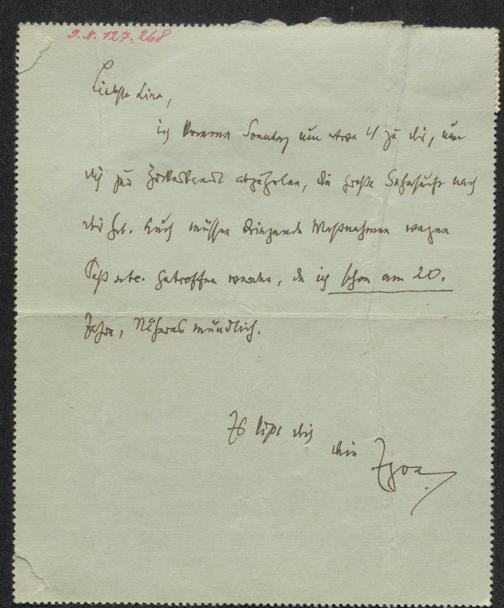 I.N. 127.268
Liebste Lina,
ich komme Sonntag um etwa 4 zu dir, um
dich zur abzuholen, die große Sehnsucht nach
dir hat. Auch müssen dringende Maßnahmen wegen
Paß etc. getroffen werden, da ich schon am 20.
fahre, Näheres mündlich.
Es küßt dich
dein Egon